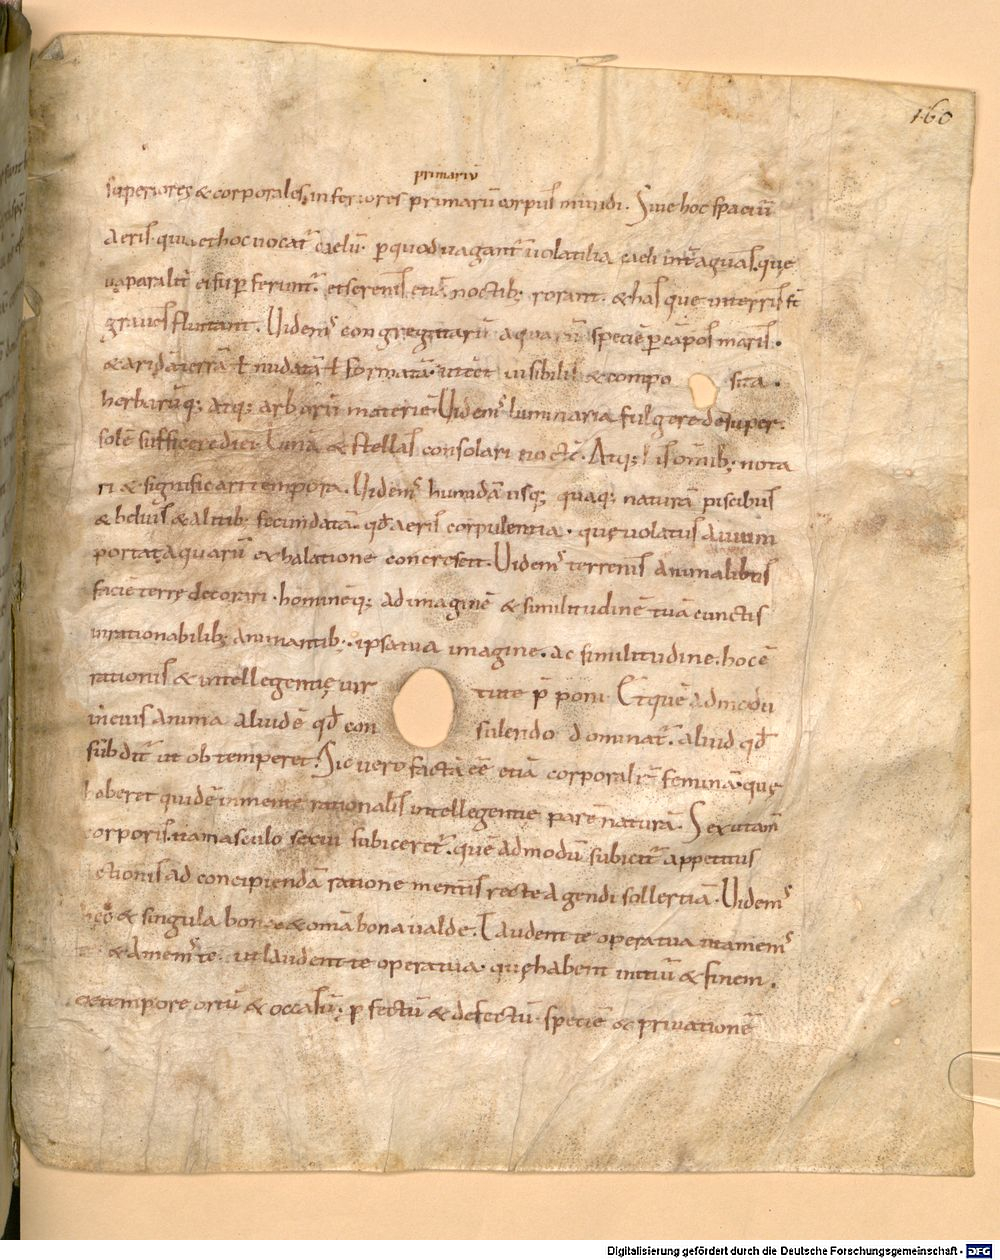 160
primariu
superiores & corporales inferiores primarũ corpus mundi. Siue hoc spaciũ
aeris. quia et hoc uocat̃ caelũ. ꝑ quod uagant̃ uolatilia caeli int̃ aquas. quę
uaporalit̃ ei suꝑferunt̃. et serenis etiã noctib; rorant. & has que in terris st̃
graues fluitant. Uidem̃ congregatarũ aquarũ speciẽ ꝑ cãpos maris.
& aridã terrã ł nudatã ł formatã uisibilis & compo sita.
herbarũq; atq; arborũ materiẽ. Uidem̃ luminaria fulgere desuper.
solẽ sufficere diei. Lunã & stellas consolari noctẽ. Atq; his omib; nota
ri & significari tempora. Uidem̃ humidã usq; quaq; naturã piscibus
& beluis & alitib; fecundatã. qđ aeris corpulentia. quę uolatus auium
portat. aquarũ exhalatione concrescit. Uidem̃ terrenis animalibus
faciẽ terrę decorari. hominẽq; ad imaginẽ & similitudinẽ tuã cunctis
inrationabilib; animantib;. ipsa tua imagine. ac similitudine. hoc ẽ
rationis & intellegentię uir tute p̄poni. Et quẽ admodũ
in eius anima aliud ẽ qđ con sulendo dominat̃. aliud qđ
subdit̃ ut obtemperet. Sic uero factã eẽ etiã corporalit̃ feminã. quę
haberet quidẽ in mente rationalis intellegentie parẽ naturã. Sexu tam
corporis. ita masculo sexui subiceret̃. quẽ admodũ subicit̃ appetitus
ctionis ad concipiendã ratione mentis recte agendi sollertiã. Uidem̃
hęc & singula bona & omã bona ualde. Laudent te opera tua ut amem̃
te & amem̃ te. ut laudent te opera tua. quę habent initiũ & finem.
ex tempore ortũ & occasũ; ꝑfectũ & defectũ. speciẽ & priuationẽ
Digitalisierung gefördert durch die Deutsche Forschungsgemeinschaft - DFG